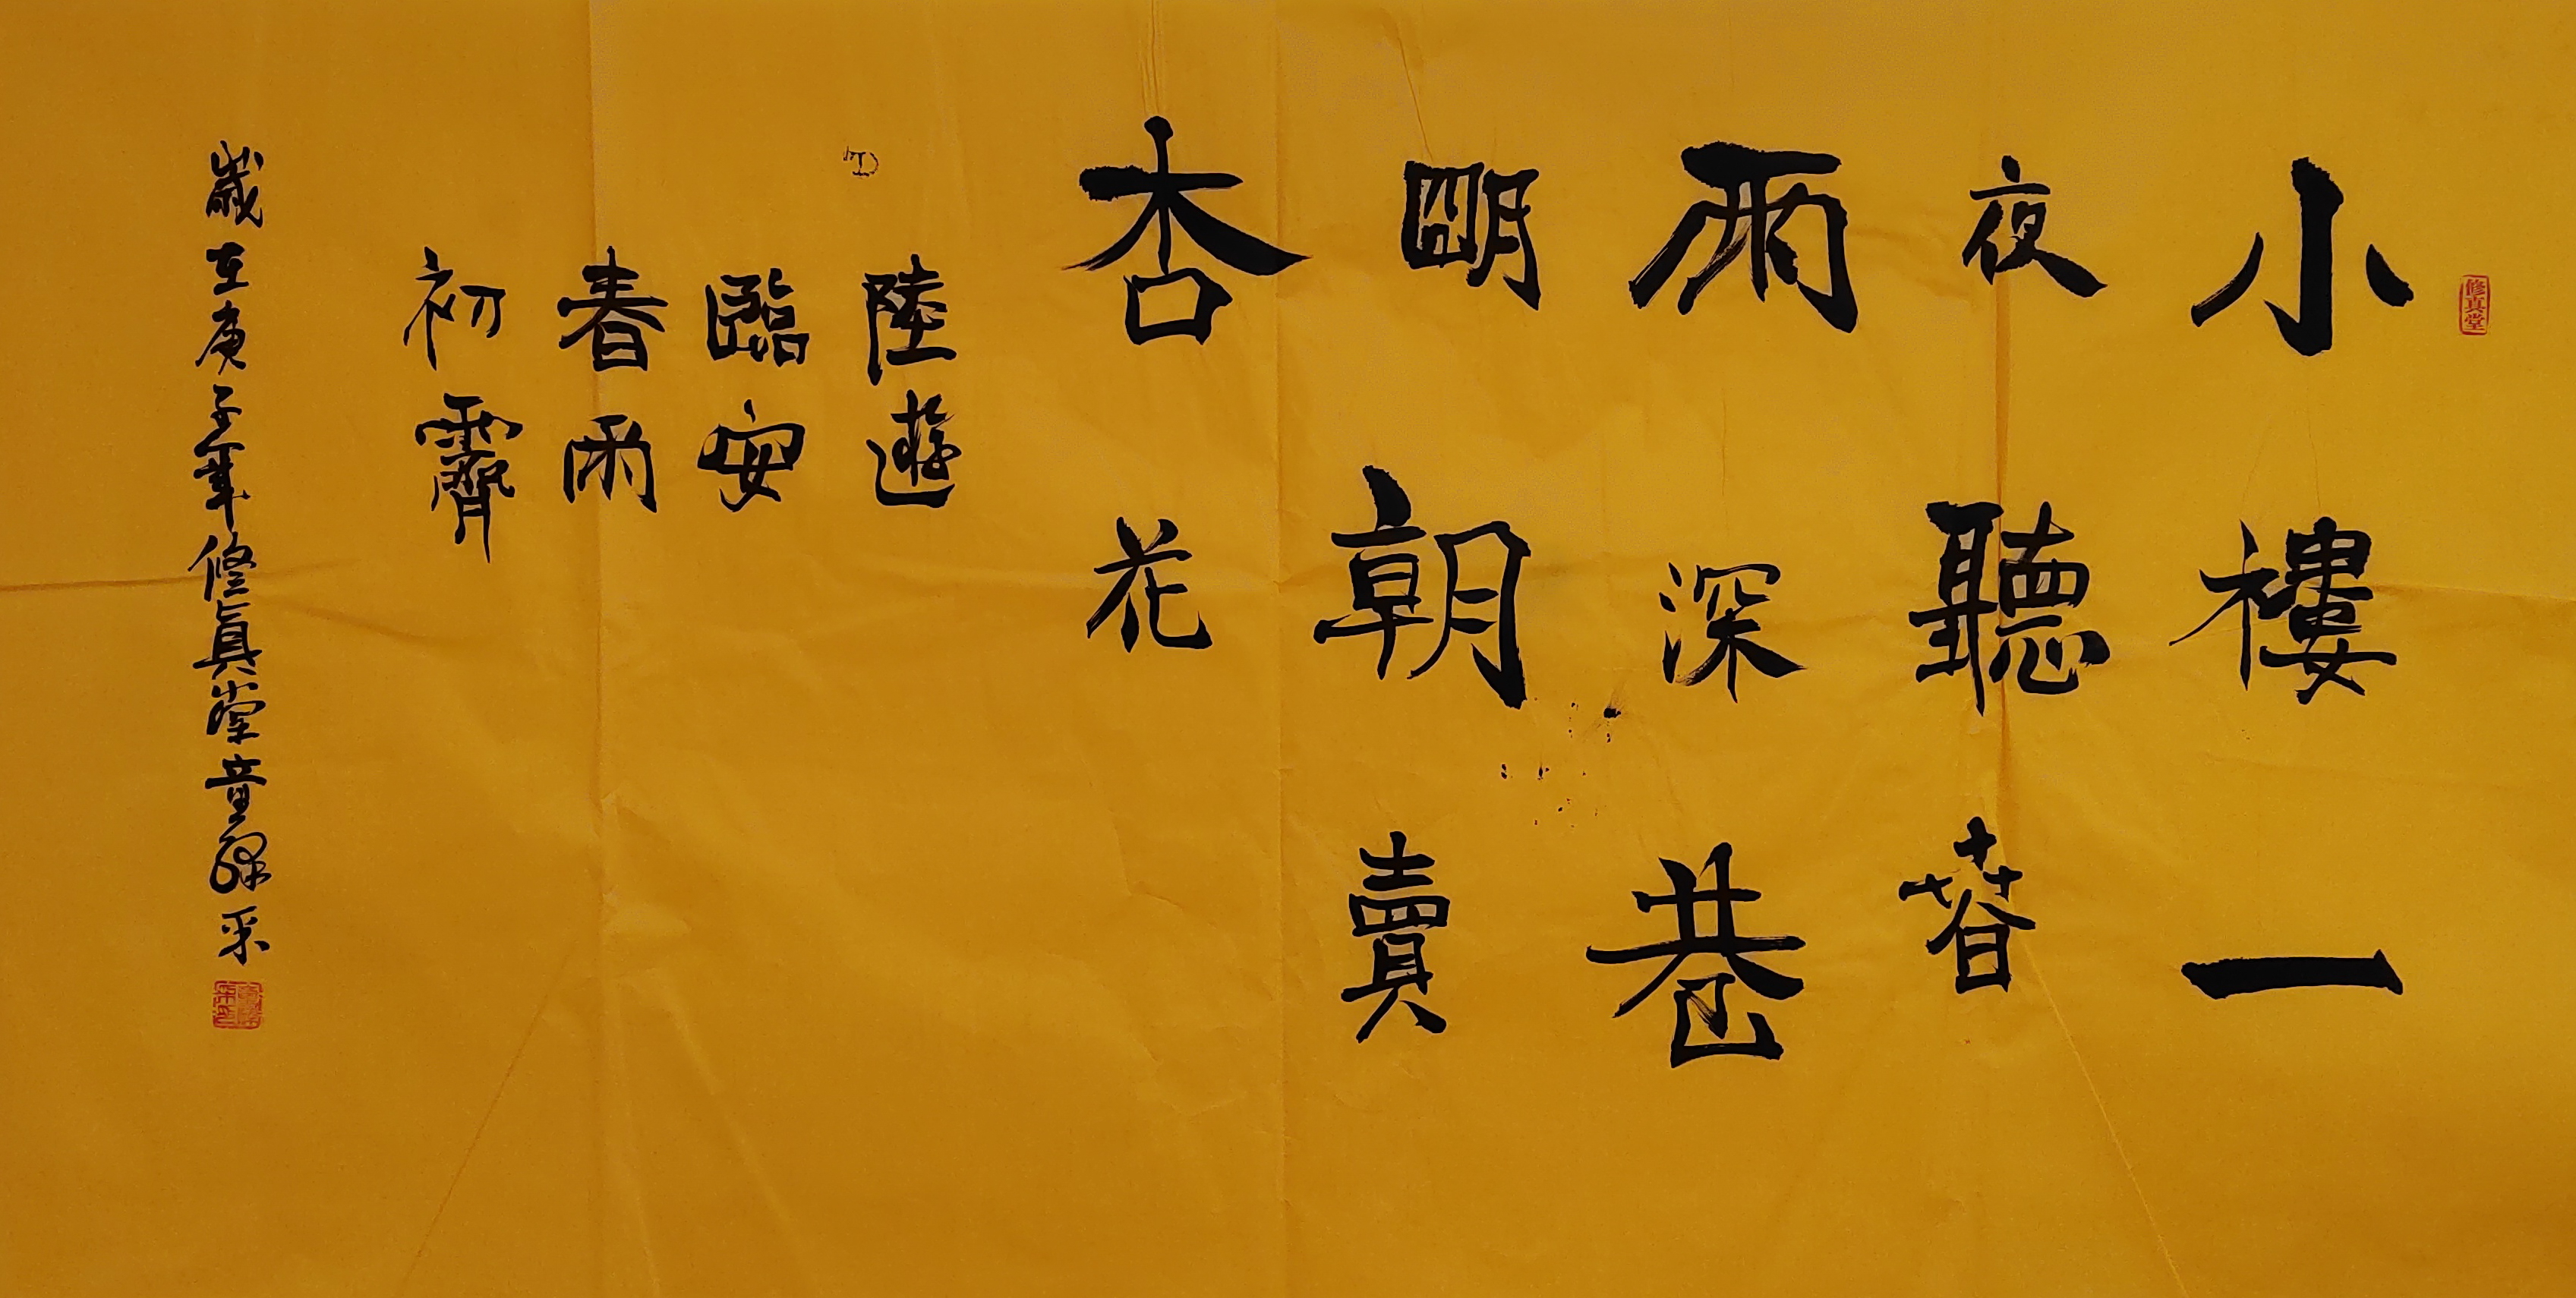 修真堂
小樓一
夜聽春
雨深巷
明朝賣
杏花
陸遊
臨安
春雨
初霽
歲在庚子年修真堂童